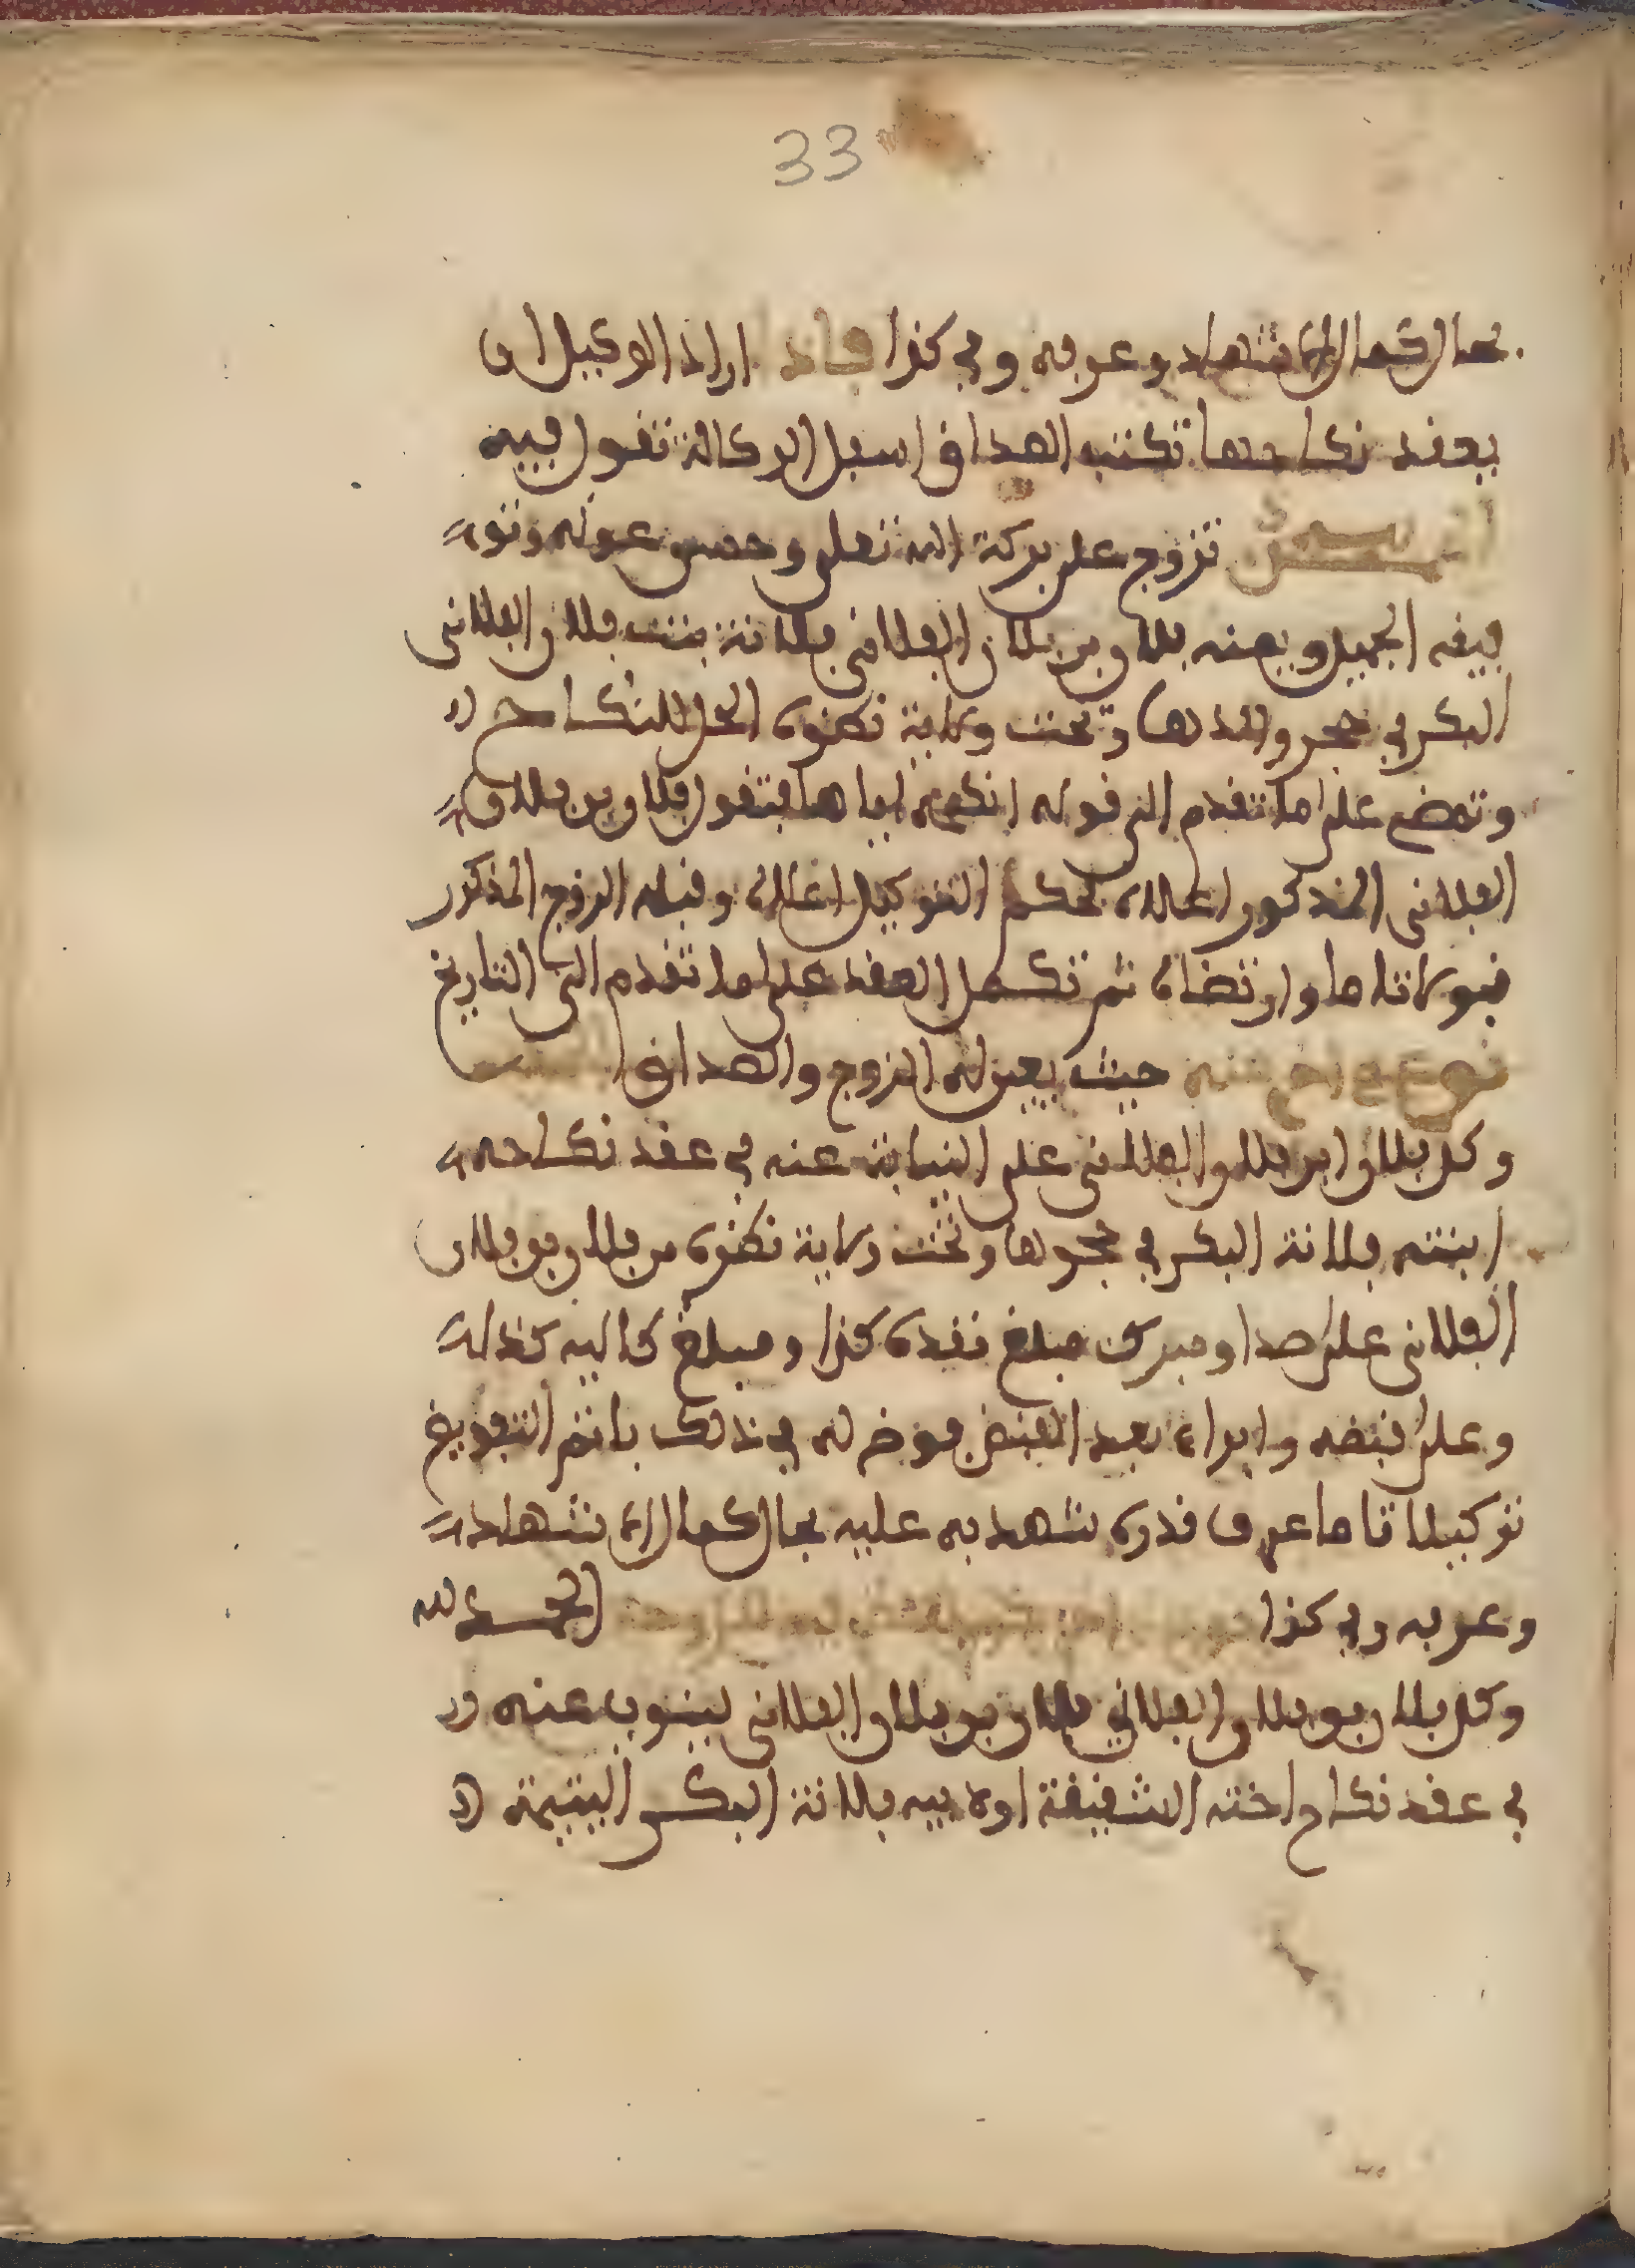 33
بحال كمال الاشهاد وعرفه وفي كذا فإذا اراد الوكيل ان
يعقد نكاحها تكتب الصداق اسفل الوكالة تقول فيه
تزوج على بركة الله تعلى وحسن عونه وتو
فيقه الجميل ويمنه فلان بن فلان الفلاني فلانة بنت فلان الفلاني
البكر في حجر والدها وتحت ولاية نظره الحل للنكاح
وتمضي على ما تقدم الى قوله انكحه اياها فتقول فلان بن فلان
الفلاني المذكور اعلاه بحكم التوكيل اعلاه وقبله الزوج المذكور
قبولا تاما وارتضاه ثم تكمل العقد على ما تقدم الى التاريخ
نوع اخر منه حيث يعين له الزوج والصداق
وكل فلان ابن فلان الفلاني على النيابة عنه في عقد نكاح
ابنته فلانة البكر في حجره وتحت ولاية نظره من فلان بن فلان
الفلاني على صداق مبلغ نقده كذا ومبلغ كاليه كذا
وعلى قبضه وابراء بعد القبض فوض له في ذلك باتم التفويض
توكيلا تاما عرف قدره شهد به عليه بحال كمال الاشهاد
وعرفه وفي كذا الحمد لله
وكل فلان بن فلان الفلاني فلان بن فلان الفلاني لينوب عنه
في عقد نكاح اخته الشقيقة او لابيه فلانة البكر اليتيمة